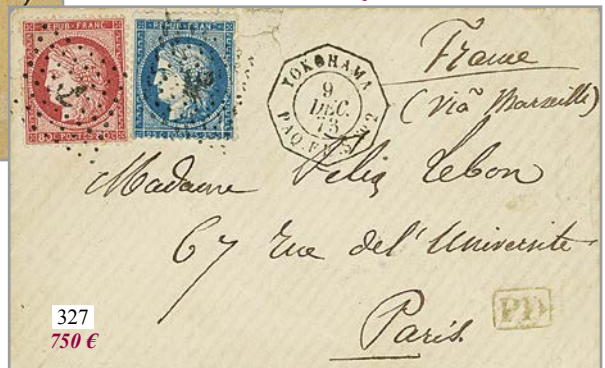 REPUB·FRANC
REPUB·FRANC
80·POSTES·80
YOKOHAMA
9
DEC.
73
PAQ.FR. Nº2
France
(viã Marseille)
Madame Felix Lebon
67 rue de l'Université
Paris
PD
327
750 €